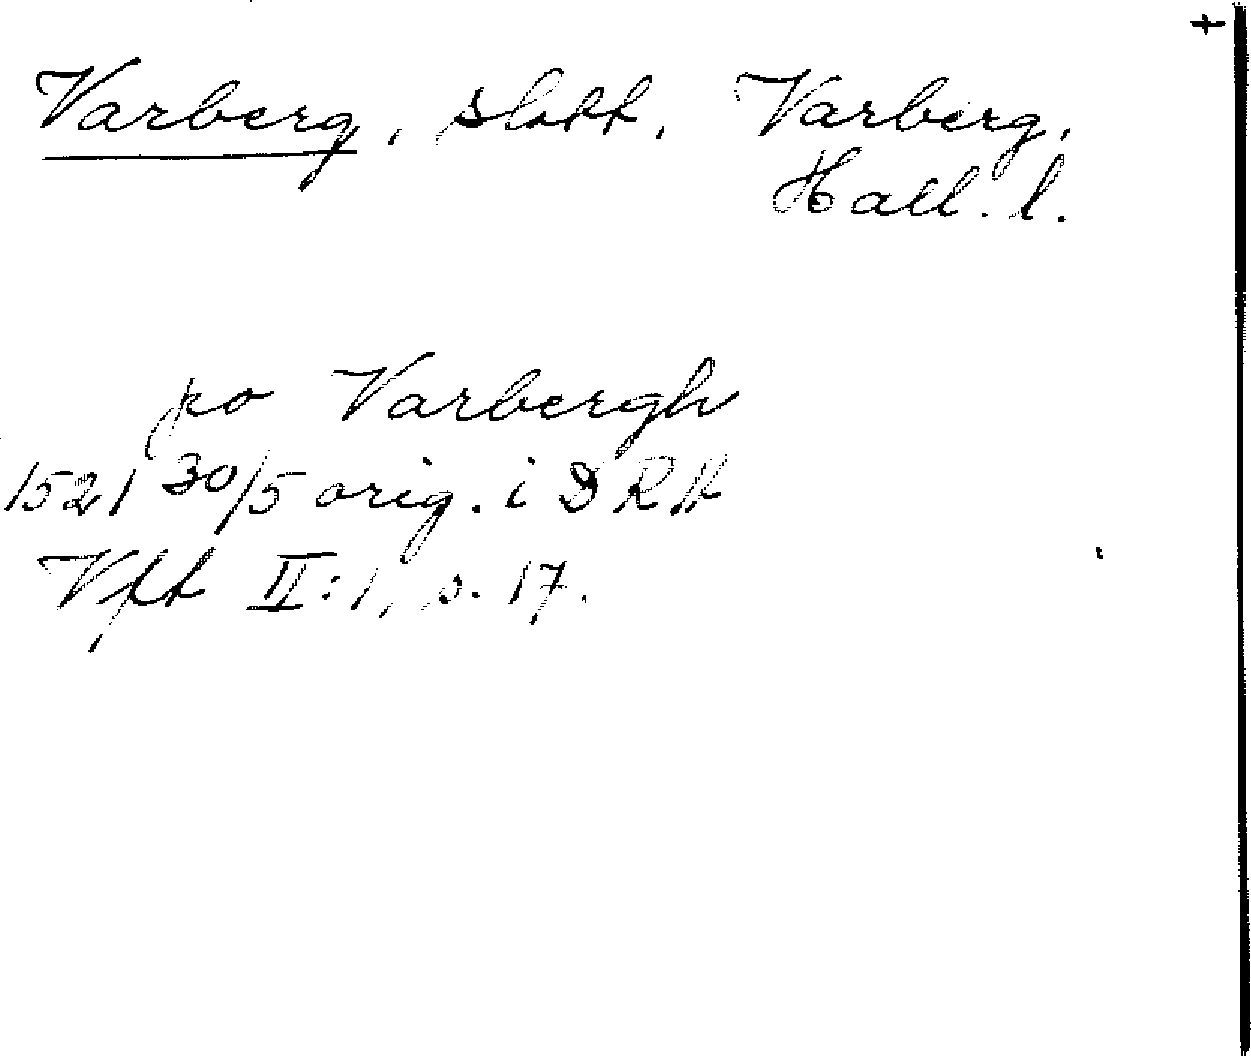 +
Varberg, slott, Varberg,
Hall. l.
po Varbergh
1521 30/5 orig. i DRA
Vft II:1, s. 17.